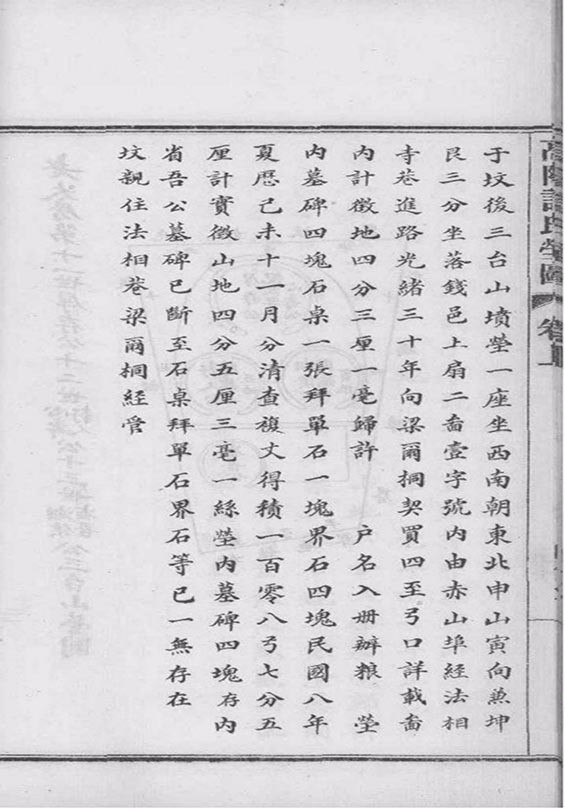 高陽許氏塋圖 卷上
于坟後三台山墳塋一座坐西南朝東北申山寅向兼坤
艮三分坐落錢邑上扇二啚壹字號內由赤山埠經法相
寺巷進路光緒三十年向梁爾桐契買四至弓口詳載啚
內計徵地四分三厘一毫歸許 戶名入册辦粮 塋
內墓碑四塊石桌一張拜單石一塊界石四塊民國八年
夏歷己未十一月分清查複丈得積一百零八弓七分五
厘計實徵山地四分五厘三毫一絲塋內墓碑四塊存內
省吾公墓碑已斷至石桌拜單石界石等已一無存在
坟親住法相巷梁爾桐經管